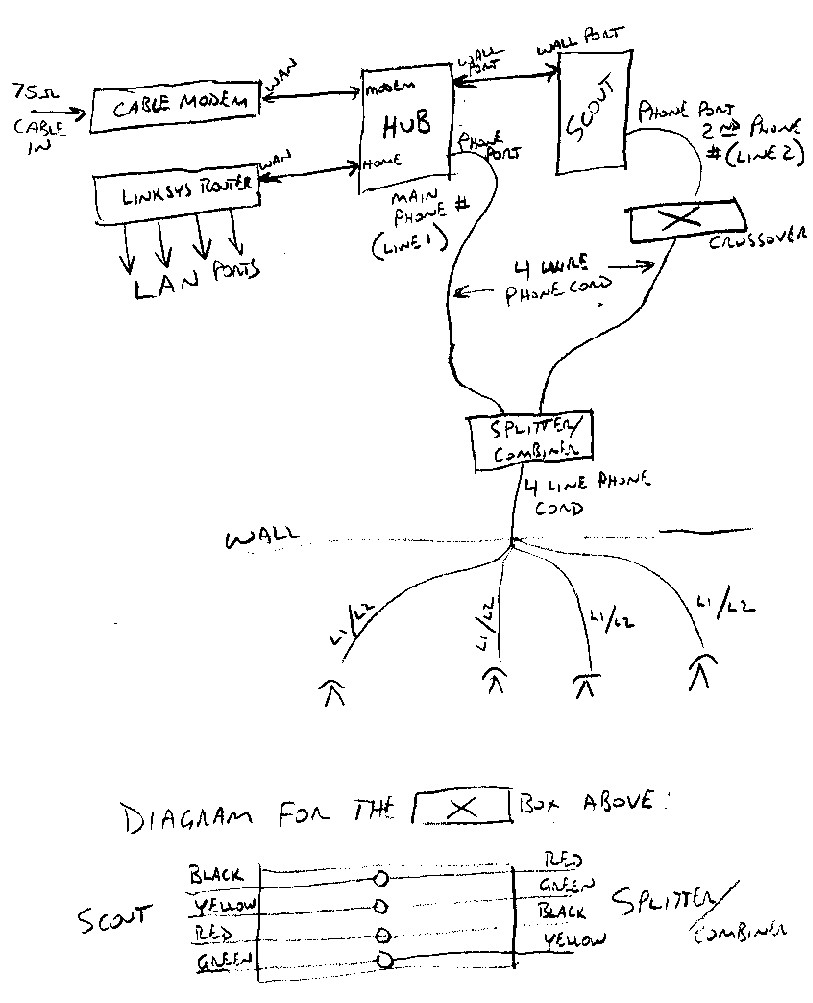 75Ω
CABLE
IN
CABLE MODEM
WAN
MODEM
HUB
HOME
WALL
PORT
WALL PORT
SCOUT
PHONE PORT
2ND PHONE
# (LINE 2)
LINKSYS ROUTER
WAN
PHONE
PORT
MAIN
PHONE #
(LINE 1)
X
CROSSOVER
LAN PORTS
4 WIRE
PHONE CORD
SPLITTER/
COMBINER
4 LINE PHONE
CORD
WALL
L1/L2
L1/L2
L1/L2
L1/L2
DIAGRAM FOR THE X BOX ABOVE:
SCOUT
BLACK
YELLOW
RED
GREEN
RED
GREEN
BLACK
YELLOW
SPLITTER/
COMBINER